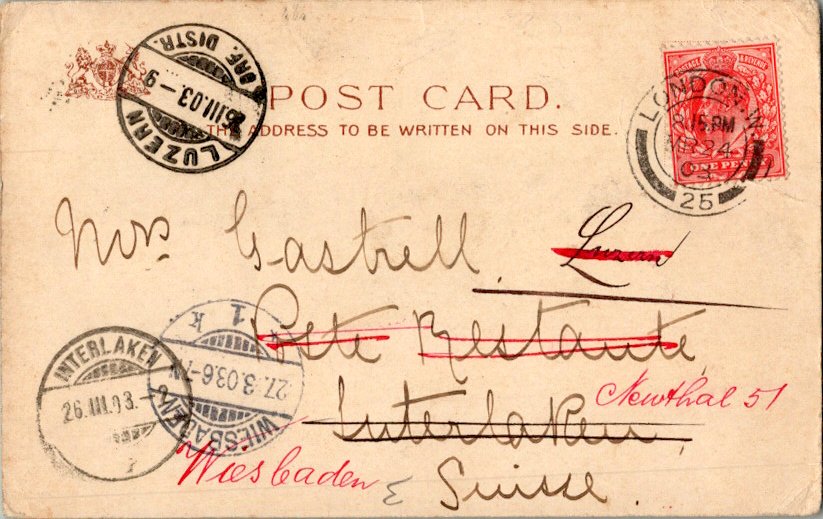 POST CARD.
THE ADDRESS TO BE WRITTEN ON THIS SIDE.
LUZERN
BRF. DISTR.
26.III.03 — 9
POSTAGE & REVENUE
ONE PENNY
LONDON. W.
8.15 PM
MR 24
03
25
Mrs. Gastrell
Luzern
Poste Restante,
Interlaken,
Suisse.
Newthal 51
Wiesbaden
INTERLAKEN
26.III.03.
WIESBADEN
27.3.03.6-7
1
k